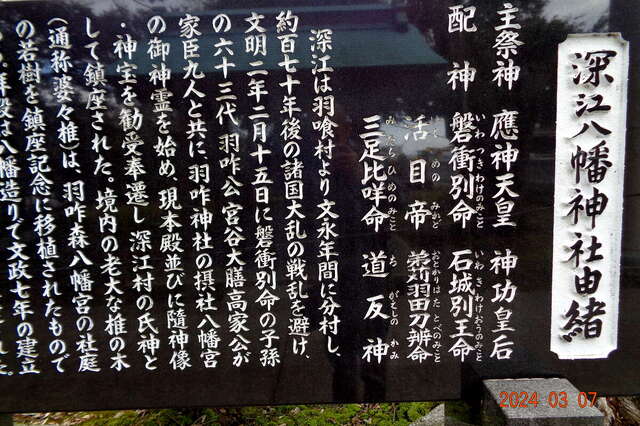 深江八幡神社由緒
主祭神 應神天皇 神功皇后
配神 磐衝別命 石城別王命
いわつきわけのみこと いわきわけおうのみこと
活目帝 弟苅羽田刀辨命
めのみかど おとかりはたとべのみこと
三足比咩命 道反神
みたらひめのみこと ちがえしのかみ
深江は羽喰村より文永年間に分村し、
約百七十年後の諸国大乱の戦乱を避け、
文明二年二月十五日に磐衝別命の子孫
の六十三代 羽咋公 宮谷大膳高家公が
家臣九人と共に 羽咋神社の摂社八幡宮
の御神霊を始め、現本殿並びに隨神像
・神宝を勧受奉遷し 深江村の氏神と
して鎮座された。境内の老大な椎の木
(通称婆々椎)は、羽咋森八幡宮の社庭
の若樹を鎮座記念に移植されたもので
拝殿は八幡造りで文政七年の建立
2024 03 07